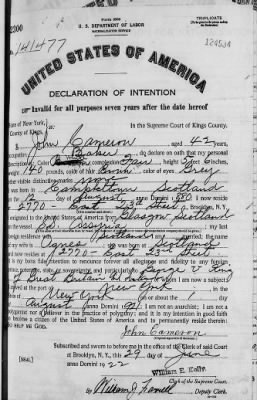 Form 2203
U. S. DEPARTMENT OF LABOR
NATURALIZATION SERVICE
TRIPLICATE
2200
No. 141477
124534
UNITED STATES OF AMERICA
DECLARATION OF INTENTION
Invalid for all purposes seven years after the date hereof
State of New York,
County of Kings,
In the Supreme Court of Kings County.
I, John Cameron, aged 42 years,
occupation Baker, do declare on oath that my personal
description is: Color White, complexion Fair, height 5 feet 6 inches,
weight 140 pounds, color of hair Brown, color of eyes Grey
other visible distinctive marks none
I was born in Campbeltown Scotland
on the day of August, anno Domini 1880; I now reside
at 2770 East 23rd Street, Brooklyn, N. Y.
I emigrated to the United States of America from Glasgow Scotland
on the vessel
residence was Scotland
wife is Agnes; she was born at Scotland
and now resides at 2770 East 23rd Street
It is my bona fide intention to renounce forever all allegiance and fidelity to any foreign
prince, potentate, state, or sovereignty, and particularly to George V King
of Great Britain & Ireland, of whom I am now a subject;
I arrived at the port of New York, in the
State of New York, on or about the day
of August, anno Domini; I am not an anarchist; I am not a
polygamist nor a believer in the practice of polygamy; and it is my intention in good faith
to become a citizen of the United States of America and to permanently reside therein:
SO HELP ME GOD.
John Cameron
Subscribed and sworn to before me in the office of the Clerk of said Court
[SEAL] at Brooklyn, N. Y., this 29 day of June
anno Domini 1922
Clerk of the Supreme Court.
By William J., Deputy Clerk.